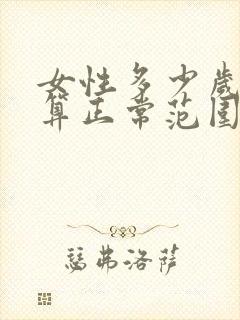 女性多少岁
算正常范围
瑟弗洛萨